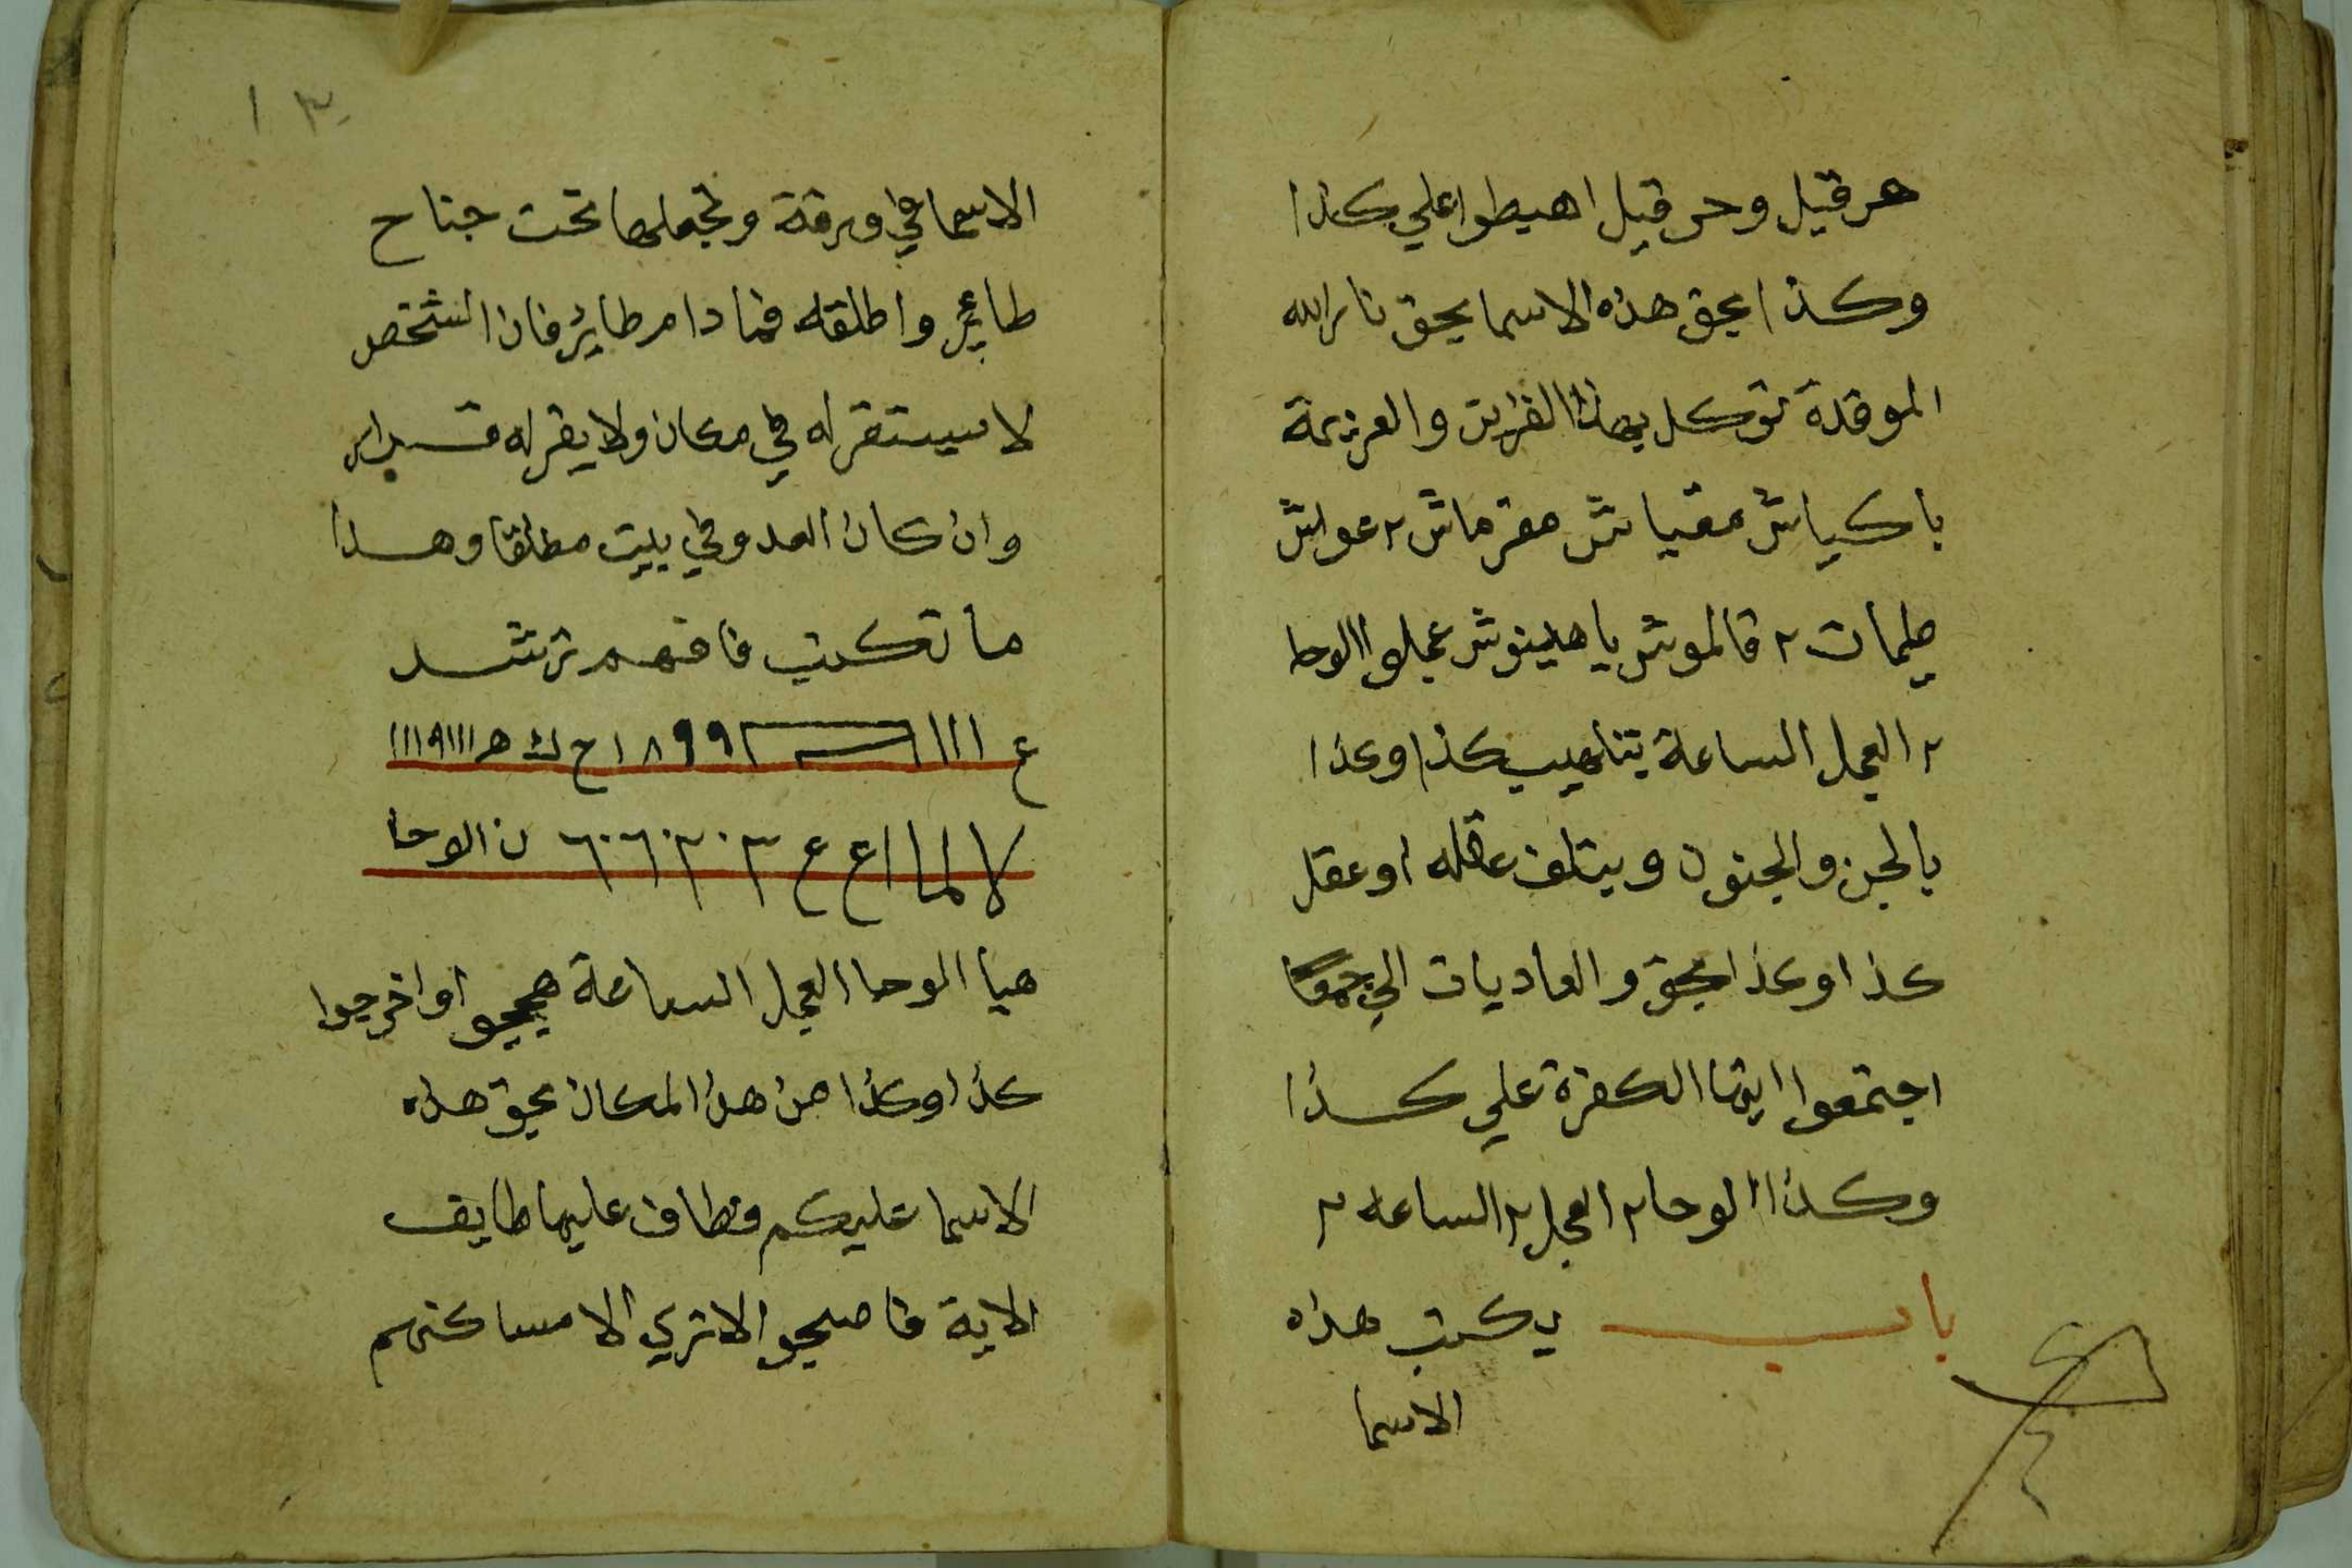 هرقيل وحرقيل اهبطوا علي كذا
وكذا بحق هذه الاسما بحق نار الله
الموقدة توكل بهاذا القراين والعزيمة
باكياش مقياش مقرماش ٢ عواش
طلمات ٢ قالموش ياهلينوش عجلوا الوحا
٢ العجل الساعة يتلهيب كذا وكذا
بالجن والجنون ويتلف عقله او عقل
كذا وكذا بحق والعاديات الي جمعًا
اجتمعوا ايتها الكفرة علي كذا
وكذا الوحا ٢ العجل ٢ الساعه ٢
باب يكتب هذه
الاسما
١٣
الاسما في ورقة وتجعلها تحت جناح
طاير واطلقه فما دام طاير فان الشخص
لا يستقر له في مكان ولا يقر له قرار
وان كان العدو في بيت مطلقا وهذا
ما تكتب فافهم ترشد
ع ااا ٩٩٨ا ح ك ه ااا٩ااا
لا لما اع ع ٣٠٢٠٦٠٦ ن الوحا
هيا الوحا العجل الساعة هيجوا واخرجوا
كذا وكذا من هذا المكان بحق هذه
الاسما عليكم فطاف عليها طايف
الاية فاصبحوا لا تري الا مساكنهم